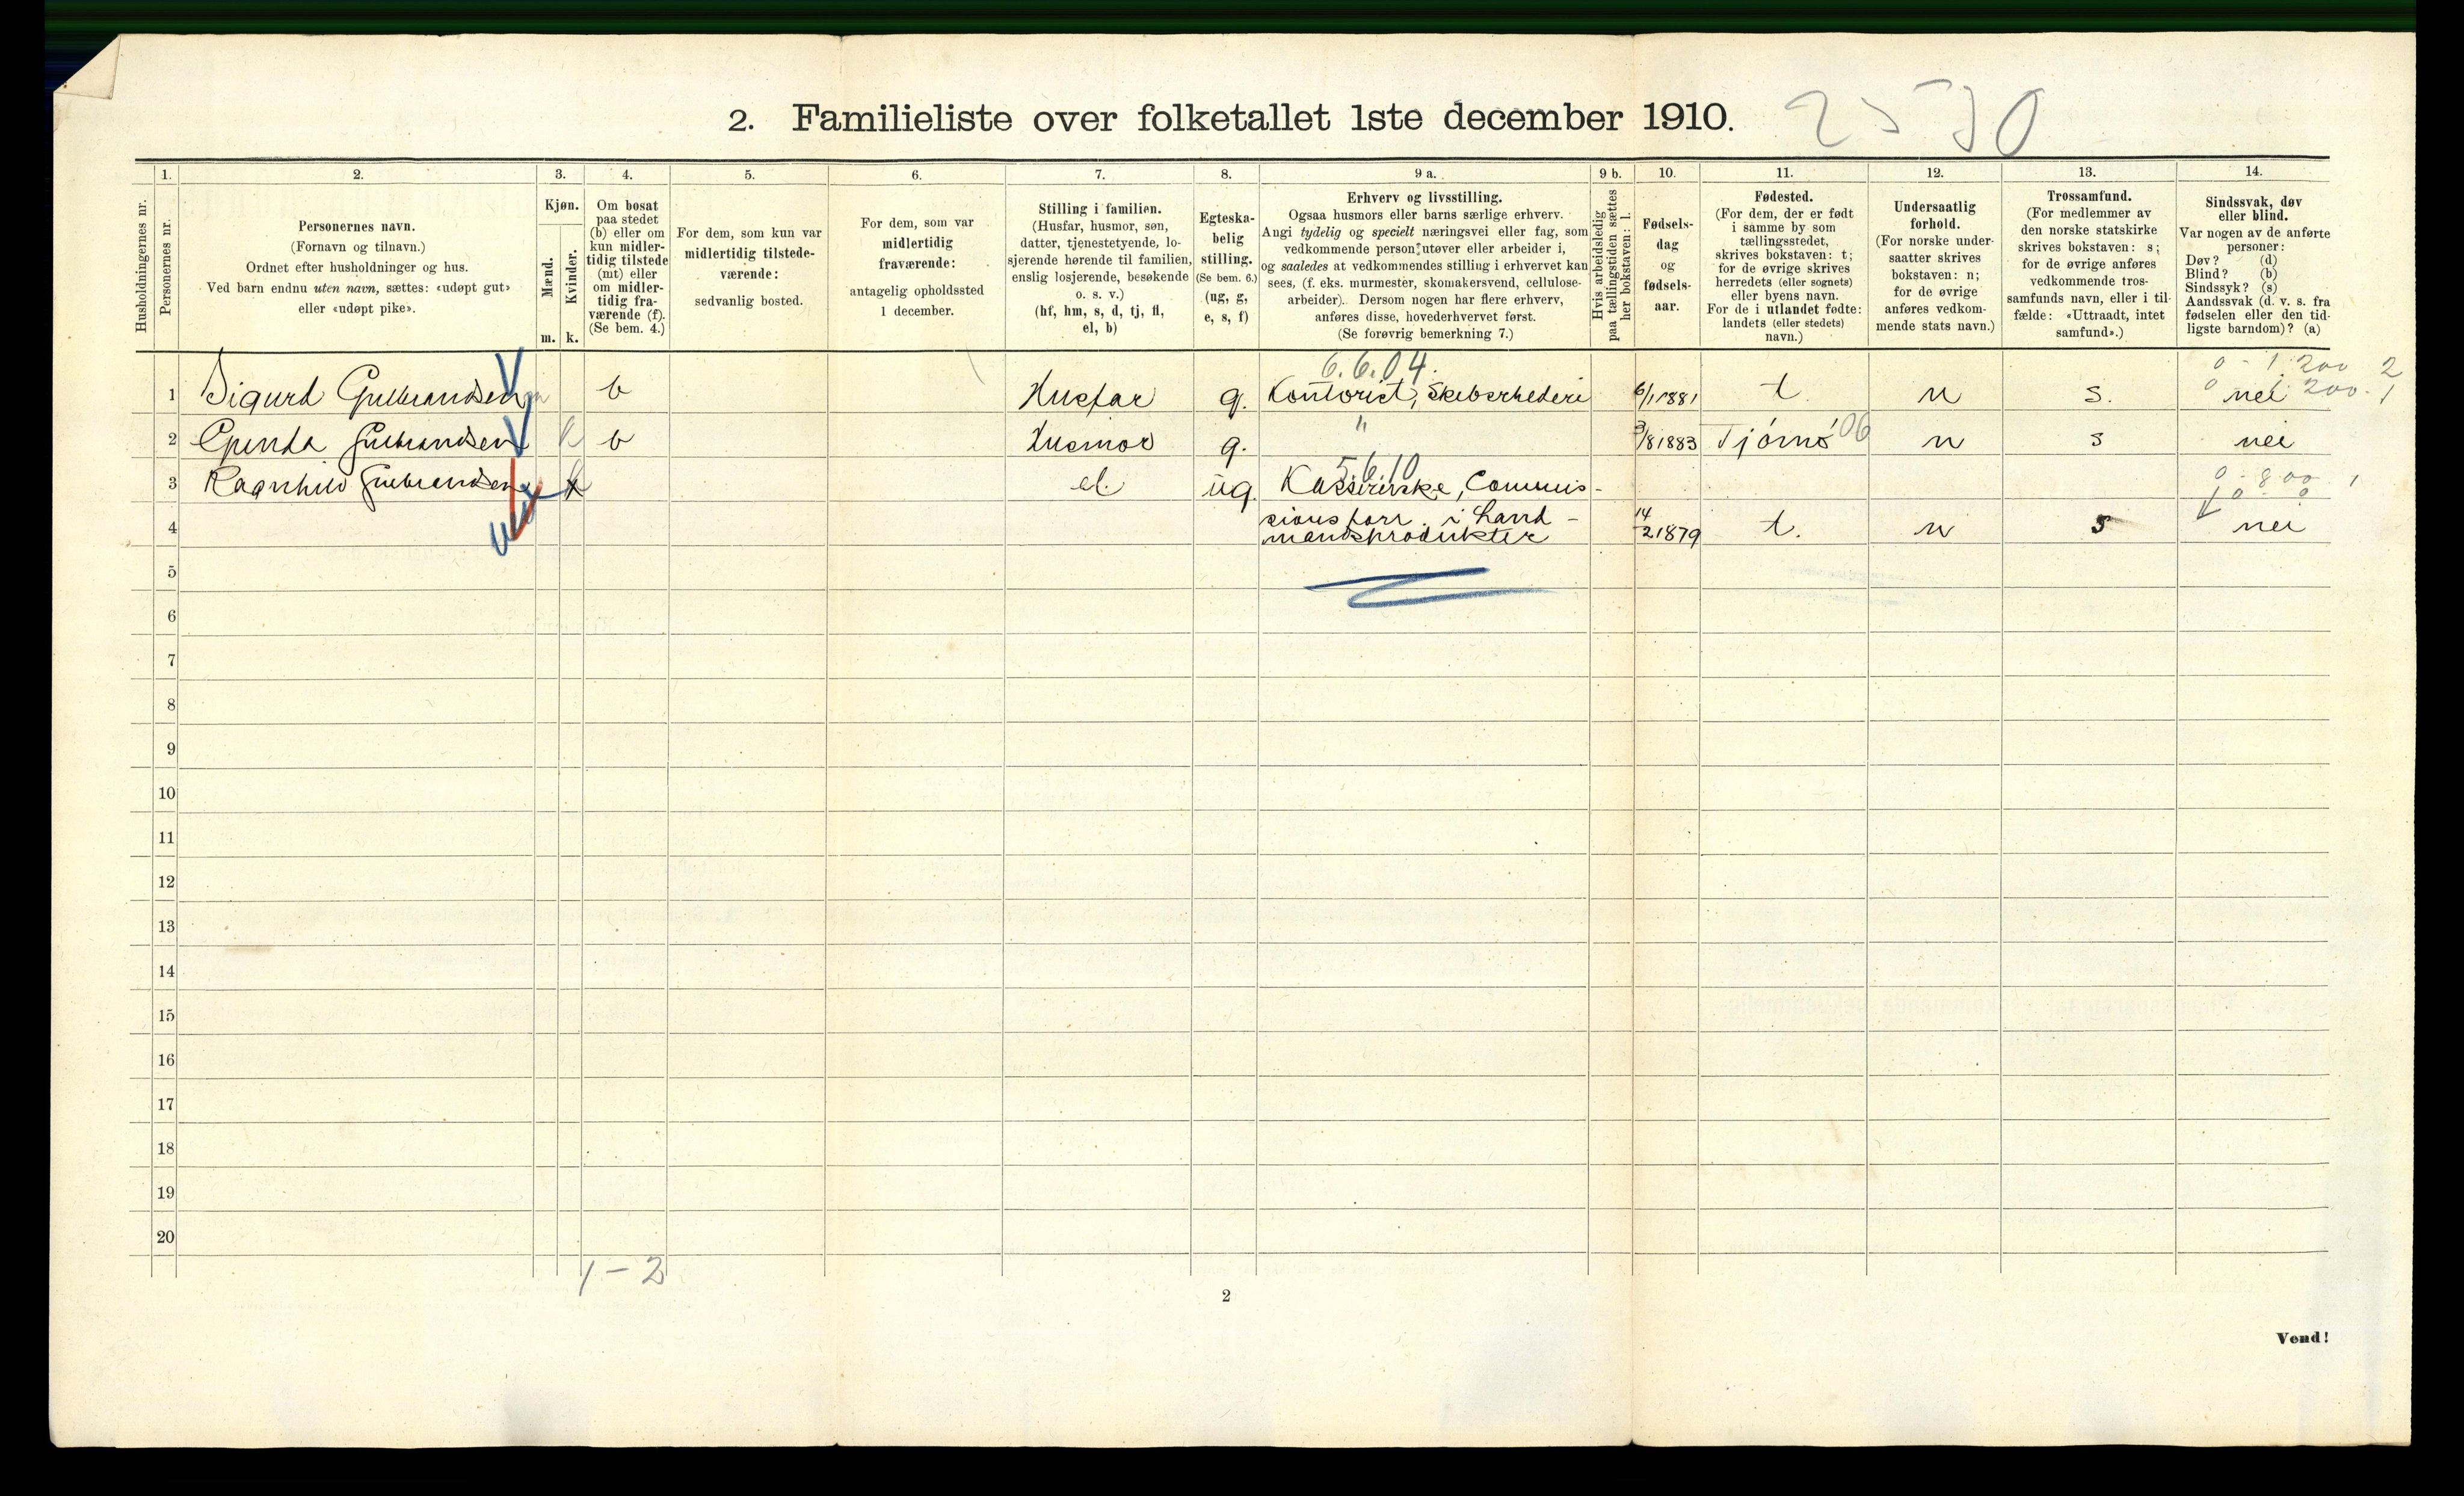 2. Familieliste over folketallet 1ste december 1910.
2530
1. 2. 3. 4. 5. 6. 7. 8. 9 a. 9 b. 10. 11. 12. 13. 14.
Husholdningernes nr.
Personernes nr.
Personernes navn.
(Fornavn og tilnavn.)
Ordnet efter husholdninger og hus.
Ved barn endnu uten navn, sættes: «udøpt gut»
eller «udøpt pike».
Kjøn.
Mænd.
m.
Kvinder.
k.
Om bosat
paa stedet
(b) eller om
kun midler-
tidig tilstede
(mt) eller
om midler-
tidig fra-
værende (f).
(Se bem. 4.)
For dem, som kun var
midlertidig tilstede-
værende:
sedvanlig bosted.
For dem, som var
midlertidig
fraværende:
antagelig opholdssted
1 december.
Stilling i familien.
(Husfar, husmor, søn,
datter, tjenestetyende, lo-
sjerende hørende til familien,
enslig losjerende, besøkende
o. s. v.)
(hf, hm, s, d, tj, fl,
el, b)
Egteska-
belig
stilling.
(Se bem. 6.)
(ug, g,
e, s, f)
Erhverv og livsstilling.
Ogsaa husmors eller barns særlige erhverv.
Angi tydelig og specielt næringsvei eller fag, som
vedkommende person utøver eller arbeider i,
og saaledes at vedkommendes stilling i erhvervet kan
sees, (f. eks. murmester, skomakersvend, cellulose-
arbeider). Dersom nogen har flere erhverv,
anføres disse, hovederhvervet først.
(Se forøvrig bemerkning 7.)
Hvis arbeidsledig
paa tællingstiden sættes
her bokstaven: l.
Fødsels-
dag
og
fødsels-
aar.
Fødested.
(For dem, der er født
i samme by som
tællingsstedet,
skrives bokstaven: t;
for de øvrige skrives
herredets (eller sognets)
eller byens navn.
For de i utlandet fødte:
landets (eller stedets)
navn.)
Undersaatlig
forhold.
(For norske under-
saatter skrives
bokstaven: n;
for de øvrige
anføres vedkom-
mende stats navn.)
Trossamfund.
(For medlemmer av
den norske statskirke
skrives bokstaven: s;
for de øvrige anføres
vedkommende tros-
samfunds navn, eller i til-
fælde: «Uttraadt, intet
samfund».)
Sindssvak, døv
eller blind.
Var nogen av de anførte
personer:
Døv? (d)
Blind? (b)
Sindssyk? (s)
Aandssvak (d. v. s. fra
fødselen eller den tid-
ligste barndom)? (a)
6.6.04. 0 - 1.200 2
1 Sigurd Gulbrandsen m b Husfar g. Kontorist, Skibsrhederi 6/1 1881 t. n s. nei 200. 1
2 Gulbrandsen k b Husmor g. " 3/8 1883 Tjømø 06 n s nei
5.6.10 0 - 800 1
3 Ragnhild Gulbrandsen k el. ug. Kasserirske, Commis-
4 sions forr. i Land- 14/2 1879 t. n s nei
mandsprodukter
5
6
7
8
9
10
11
12
13
14
15
16
17
18
19
20
1 - 2
2
Vend!